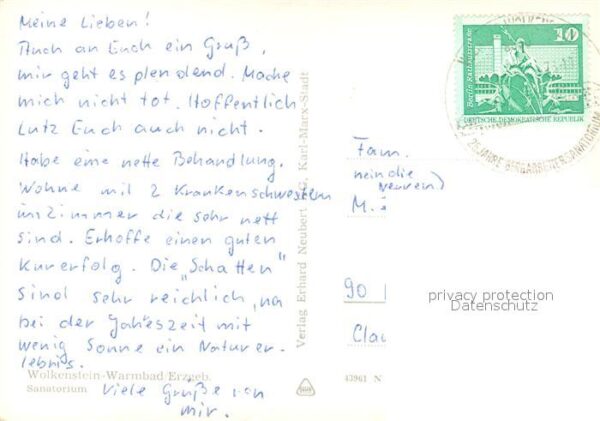 Meine Lieben!
Auch an Euch ein Gruß,
mir geht es plendend. Mache
mich nicht tot. Hoffentlich
Lutz Euch auch nicht.
Habe eine nette Behandlung.
Wohne mit 2 Krankenschwestern
im Zimmer die sehr nett
sind. Erhoffe einen guten
Kurerfolg. Die „Schatten"
sind sehr reichlich, na
bei der Jahreszeit mit
wenig Sonne ein Naturer-
lebnis.
Viele Grüße von
mir.
Wolkenstein-Warmbad/Erzgeb.
Sanatorium
Verlag Erhard Neubert KG, Karl-Marx-Stadt
43961 N
Fam.
M.
90
Clau
Berlin, Rathausstraße
10
DEUTSCHE DEMOKRATISCHE REPUBLIK
BERGARBEITERSANATORIUM
privacy protection
Datenschutz